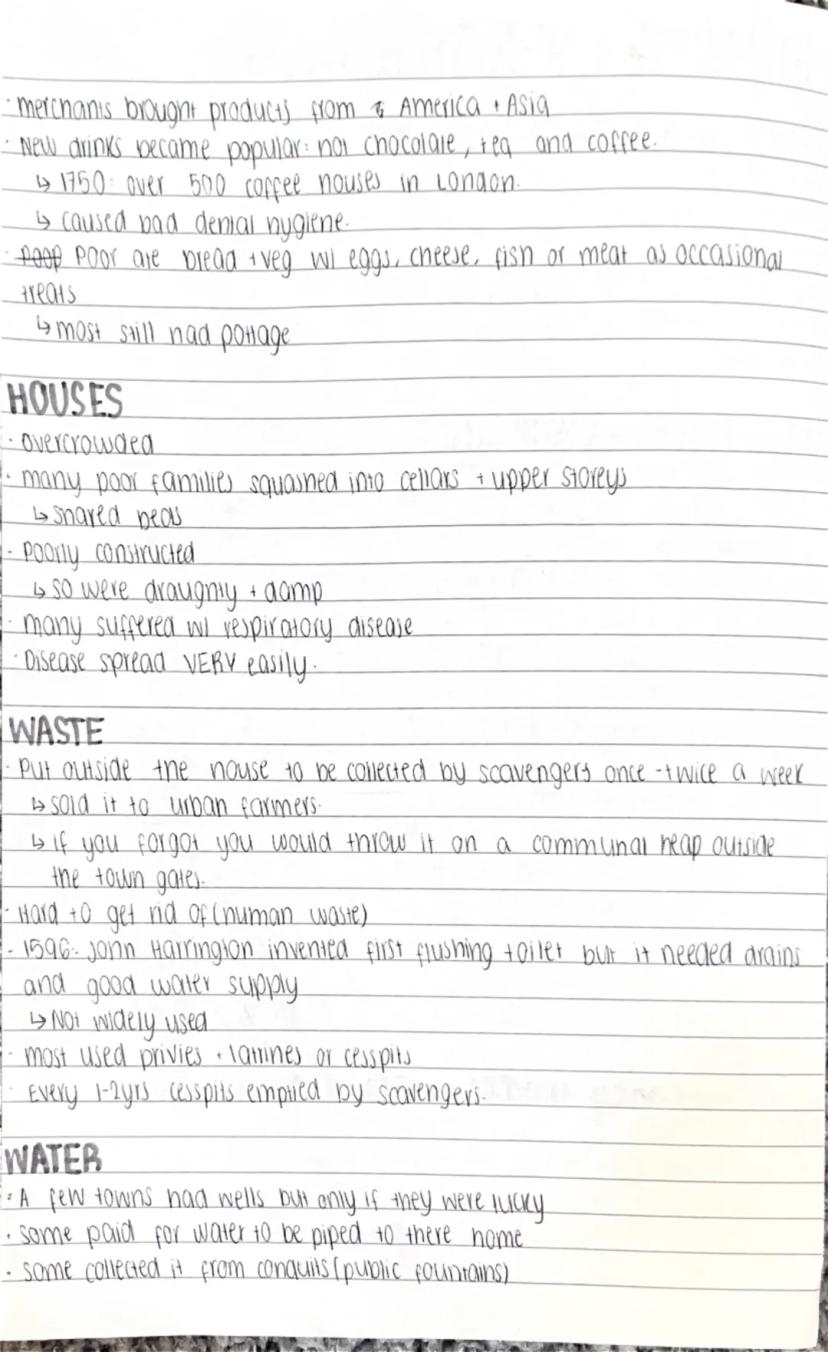 · merchants brought products from America + Asia
· New drinks became popular: hot chocolate, tea and coffee.
↳ 1750: over 500 coffee houses in London.
↳ caused bad dental hygiene.
· Poor ate bread + veg w/ eggs, cheese, fish or meat as occasional
treats
↳ most still had pottage
HOUSES
· overcrowded
· many poor families squashed into cellars + upper storeys
↳ shared beds
· Poorly constructed
↳ so were draughty + damp
· many suffered w/ respiratory disease
· Disease spread VERY easily.
WASTE
· Put outside the house to be collected by scavengers once - twice a week
↳ sold it to urban farmers.
↳ if you forgot you would throw it on a communal heap outside
the town gates.
· Hard to get rid of (human waste)
- 1596: John Harrington invented first flushing toilet but it needed drains
and good water supply
↳ Not widely used
· most used privies + latrines or cesspits
· Every 1-2yrs cesspits emptied by scavengers.
WATER
· A few towns had wells but only if they were lucky
· some paid for water to be piped to there home
· some collected it from conduits (public fountains)